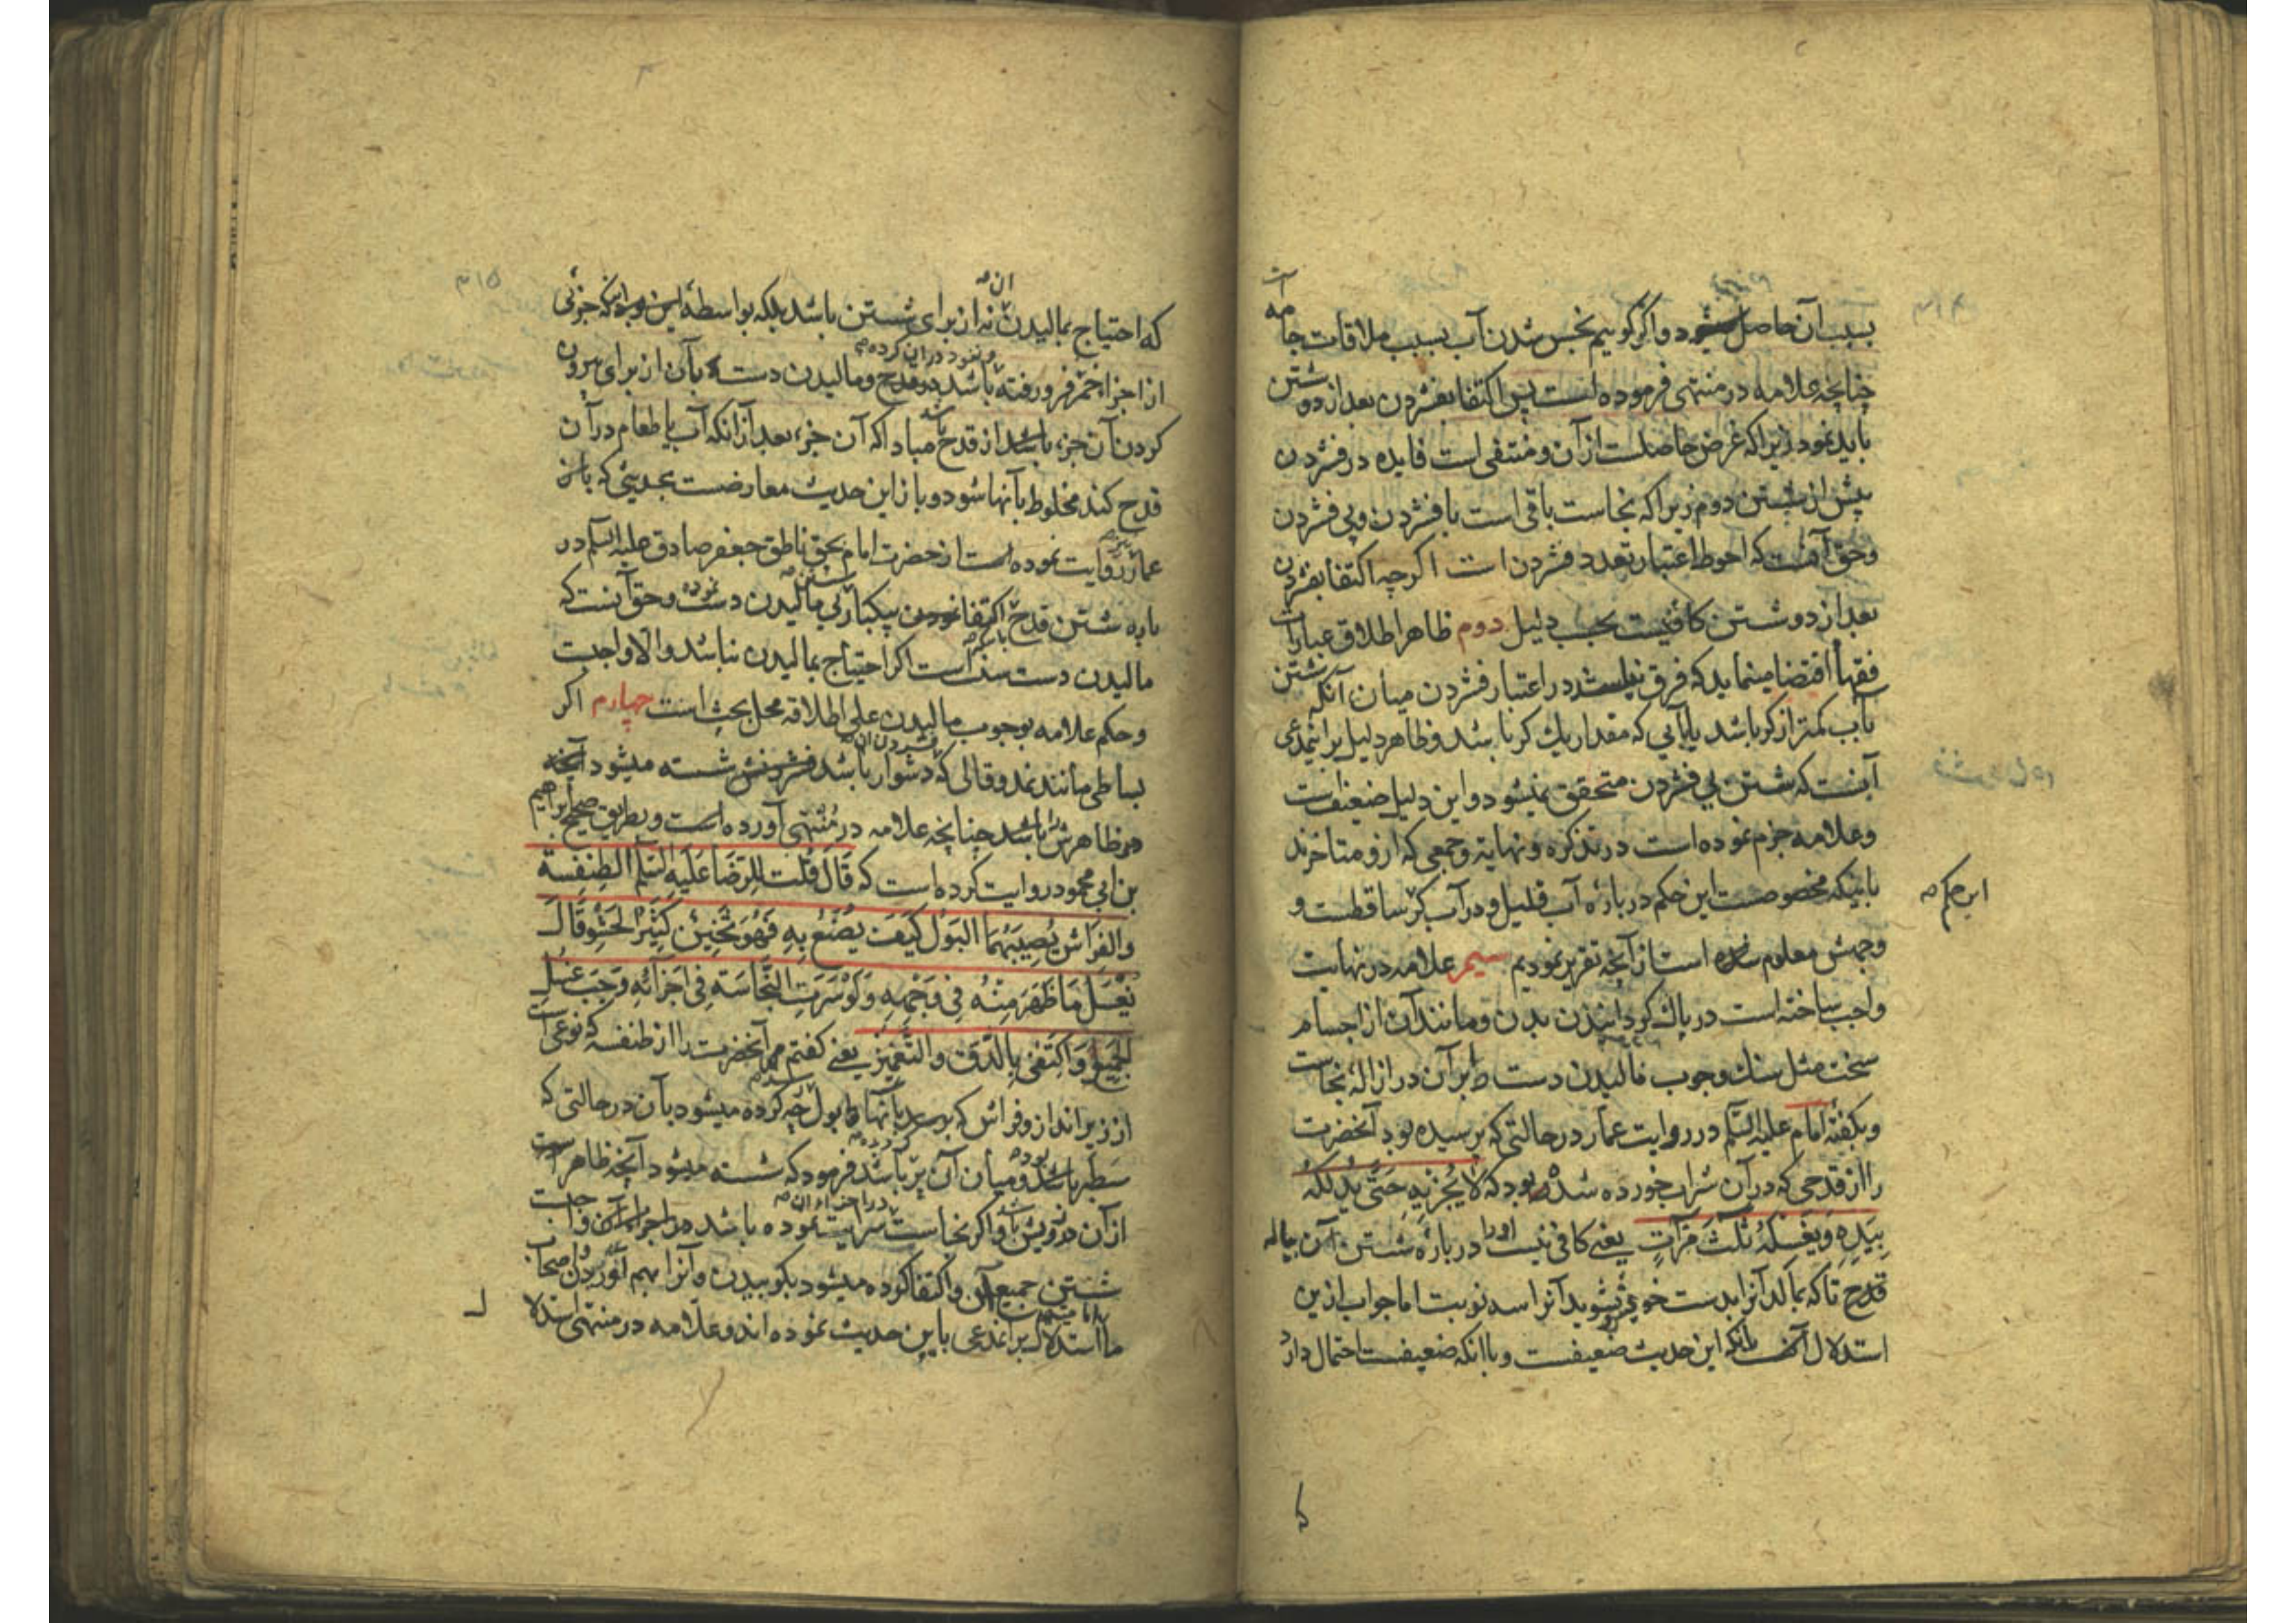 بسبب آن حاصل میشود و اگر گوییم نجس شدن آب بسبب ملاقات جامه است
چنانچه علامه در منتهی فرموده است پس اکتفا بفشردن بعد از دو شستن
باید نمود زیرا که غرض حاصلست از آن و منتفی است فایده در فشردن
پیش از شستن دوم زیرا که نجاست باقی است با فشردن و بی فشردن
و حق آنست که احوط اعتبار تعدد فشردن است اگرچه اکتفا بفشردن
بعد از دو شستن کافیست بحسب دلیل دوم ظاهر اطلاق عبارات
فقها اقتضا مینماید که فرق نباشد در اعتبار فشردن میان آنکه شستن
بآب کمتر از کر باشد یا بآبی که مقدار یک کر باشد و ظاهر دلیل بر اینمدعی
آنست که شستن بی فشردن متحقق نمیشود و این دلیل ضعیفست
و علامه جزم نموده است در تذکره و نهایة و جمعی که ازو متاخرند
باینکه مخصوصست این حکم درباره آب قلیل و در آب کر ساقطست و
این حکم
وجهش معلوم شده است از آنچه تقریر نمودیم سیم علامه در نهایت
واجب ساخته است در پاک گردانیدن بدن و مانند آن از اجسام
سخت مثل سنگ وجوب مالیدن دست بر آن در ازاله نجاست
و بگفته امام علیه السلم در روایت عمار در حالتی که پرسیده بود آنحضرت
را از قدحی که در آن شراب خورده شده بود که لا یُجزیهِ حَتّی یَدلُکَهُ
بِیَدِهِ وَیَغسِلَهُ ثَلٰثَ مَرّآتٍ یعنی کافی نیست او را درباره شستن آن پیاله
قدح تا که بمالد آنرا بدست خود و بشوید آنرا سه نوبت اما جواب ازین
استدلال آنکه این حدیث ضعیفست و با آنکه ضعیفست احتمال دارد
که
که احتیاج بمالیدن آن نه از برای شستن باشد بلکه بواسطه اینکه جزئی
از اجزاء خمر فرو رفته و نفوذ در آن کرده باشد در قدح و مالیدن دست بآن از برای بیرون
کردن آن جزء باشد از قدح مبادا که آن جزء بعد از آنکه آب یا طعام در آن
قدح کند مخلوط بآنها شود و باز این حدیث معارضست بحدیثی که باز
عمار نیز روایت نموده است از حضرت امام بحق ناطق جعفر صادق علیه السلم در
باره شستن قدح اکتفا نموده بیکبار شستن بی مالیدن دست و حق آنست که
مالیدن دست سنت است اگر احتیاج بمالیدن نباشد و الا واجبست
و حکم علامه بوجوب مالیدن علی اطلاقه محل بحث است چهارم اگر
بساطی مانند نمد و قالی که دشوار باشد فشردن آن شسته میشود آنچه
در ظاهرش باشد چنانچه علامه در مُنتهی آورده است و بطریق صحیح ابراهیم
بن ابی محمود روایت کرده است که قَالَ قُلت لِلرّضَا عَلَیهِ السَّلم الطِنفِسَة
والفِرَاش یُصِیبُهُمَا البَول کَیفَ یُصنَعُ بِهِ فَهُوَ ثَخِین کَثِیرُ الحَشوِ قَالَ
یُغسَل مَا ظَهَرَ مِنهُ فِی وَجهِهِ وَلَو سَرَتِ النَّجَاسَة فِی اَجزَائِهِ وَجَبَ غَسلُ
الجَمِیع وَاکتَفی بِالدّقّ والتَّغمِیز یعنی گفتم مر آنحضرت را از طنفسه که نوعی است
از زیر انداز و فراش که برسد بآنها بول چه کرده میشود بآن در حالتی که
سطبر بوده و میان آن پر باشد فرمود که شسته میشود آنچه ظاهر است
از آن در رویش و اگر نجاست سرایت نموده باشد در اجزاء آن واجبست
شستن جمیع آن و اکتفا کرده میشود بکوبیدن و آنرا بهم آوردن و اصحاب
ما استدلال بر اینمدعی باین حدیث نموده اند و علامه در منتهی استدلا
ل